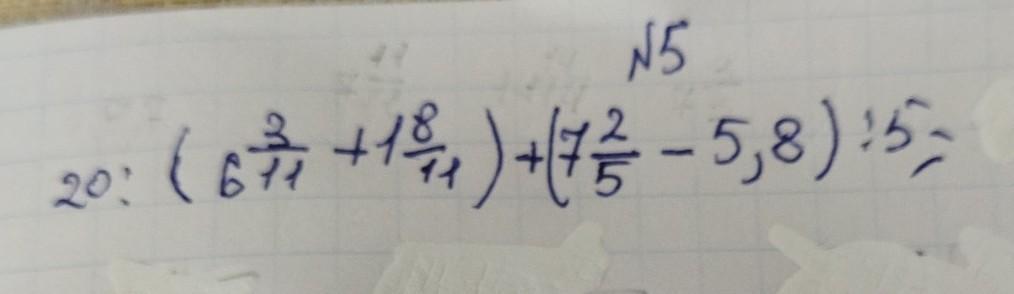 №5
20 : ( 6 3/11 + 1 8/11 ) + ( 7 2/5 - 5,8 ) : 5 =